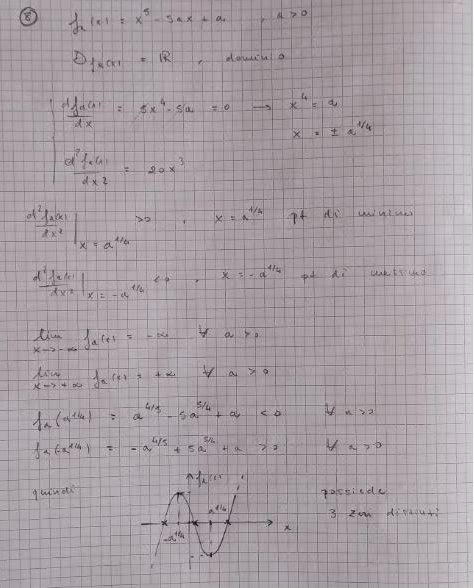 ⑧ fₐ(x) = x⁵ - 5ax + a , a > 0
D fₐ(x) = ℝ , dominio
dfₐ(x)/dx = 5x⁴ - 5a = 0 → x⁴ = a
x = ± a^1/4
d²fₐ(x)/dx² = 20x³
d²fₐ(x)/dx² | x = a^1/4 >0 , x = a^1/4 pt di minimo
d²fₐ(x)/dx² | x = -a^1/4 <0 , x = -a^1/4 pt di massimo
lim x→-∞ fₐ(x) = -∞ ∀ a > 0
lim x→+∞ fₐ(x) = +∞ ∀ a > 0
fₐ(a^1/4) = a^4/5 - 5a^5/4 + a < 0 ∀ a > 0
fₐ(-a^1/4) = -a^4/5 + 5a^5/4 + a > 0 ∀ a > 0
quindi
fₐ(x)
-a^1/4
a^1/4
x
possiede
3 zeri distinti